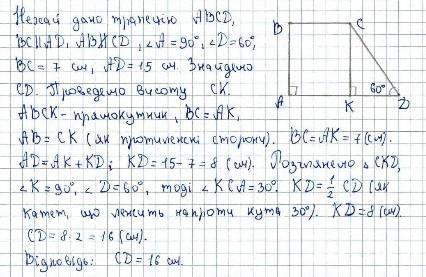 Нехай дано трапецію ABCD,
BC||AD, AB∦CD, ∠A=90°, ∠D=60°,
BC = 7 см, AD = 15 см. Знайдемо
CD. Проведемо висоту CK.
ABCK - прямокутник, BC = AK,
AB = CK (як протилежні сторони). BC=AK=7(см).
AD=AK+KD; KD=15-7=8 (см). Розглянемо △CKD,
∠K=90°, ∠D=60°, тоді ∠KCD=30°. KD=½CD (як
катет, що лежить напроти кута 30°). KD=8(см).
CD=8·2=16(см).
Відповідь: CD=16 см.
B
C
60°
A
K
D